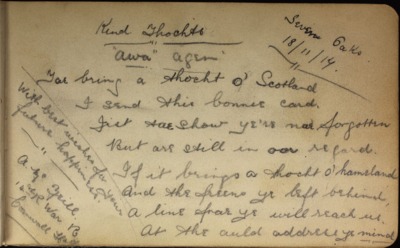 Kind Thochts
"Awa" agen
Seven Oaks
18/11/14
Tae bring a thocht o' Scotland
I send this bonnie card.
Jist tae show ye're nae forgotten
But are still in oor regard.
If it brings a thocht o' hameland
And the freens ye left behind,
A line frae ye will reach us.
At the auld address ye mind
With best wishes for your
future happiness